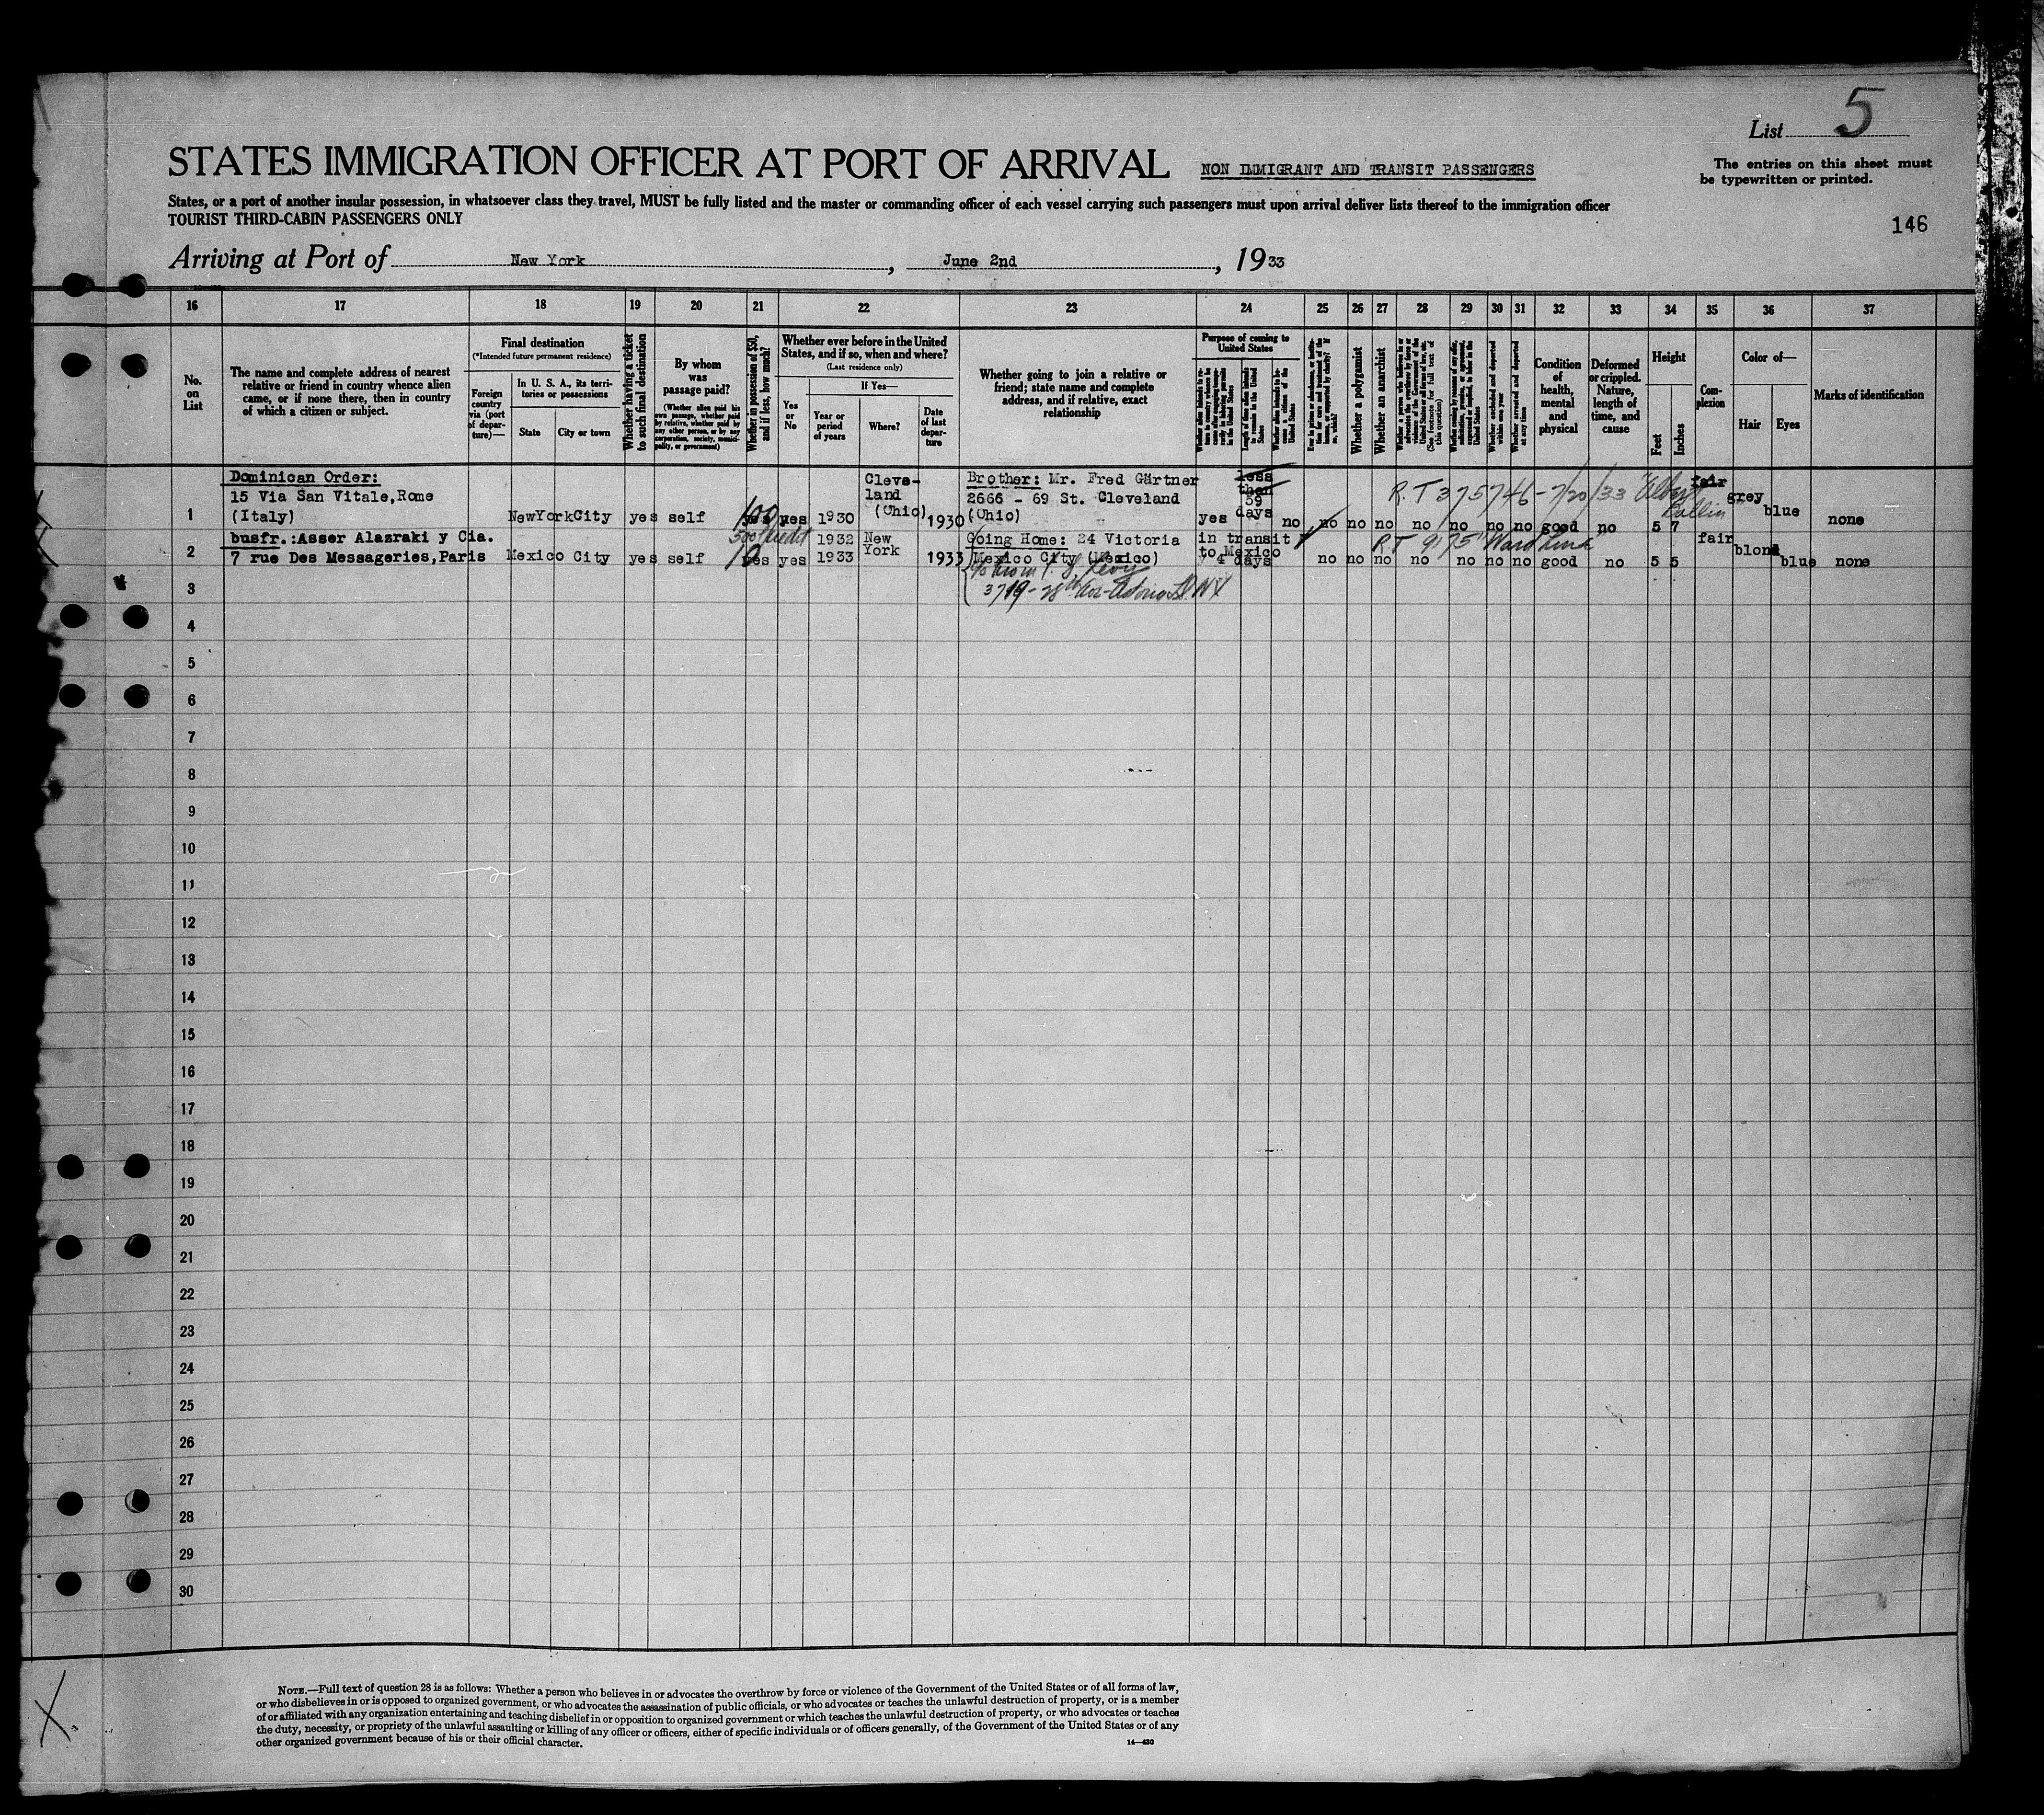 List 5
STATES IMMIGRATION OFFICER AT PORT OF ARRIVAL
NON IMMIGRANT AND TRANSIT PASSENGERS
The entries on this sheet must
be typewritten or printed.
States, or a port of another insular possession, in whatsoever class they travel, MUST be fully listed and the master or commanding officer of each vessel carrying such passengers must upon arrival deliver lists thereof to the immigration officer
TOURIST THIRD-CABIN PASSENGERS ONLY
146
Arriving at Port of New York, June 2nd, 1933
16 17 18 19 20 21 22 23 24 25 26 27 28 29 30 31 32 33 34 35 36 37
No.
on
List
The name and complete address of nearest
relative or friend in country whence alien
came, or if none there, then in country
of which a citizen or subject.
Final destination
(*Intended future permanent residence)
Foreign
country
via (port
of depar-
ture)—
In U. S. A., its terri-
tories or possessions
State
City or town
Whether having a ticket
to such final destination
By whom
was
passage paid?
(Whether alien paid his
own passage, whether paid
by relative, whether paid by
any other person, or by any
corporation, society, munici-
pality, or government)
Whether in possession of $50,
and if less, how much?
Whether ever before in the United
States, and if so, when and where?
(Last residence only)
Yes
or
No
If Yes—
Year or
period
of years
Where?
Date
of last
depar-
ture
Whether going to join a relative or
friend; state name and complete
address, and if relative, exact
relationship
Purpose of coming to
United States
Whether a polygamist
Whether an anarchist
Whether arrested and deported
at any time
Condition
of
health,
mental
and
physical
Deformed
or crippled.
Nature,
length of
time, and
cause
Height
Feet
Inches
Com-
plexion
Color of—
Hair
Eyes
Marks of identification
Dominican Order:
15 Via San Vitale, Rome
(Italy)
1 NewYorkCity yes self 100 yes yes 1930
Cleve-
land
(Ohio) 1930
Brother: Mr. Fred Gärtner
2666 - 69 St. Cleveland
(Ohio)
yes
less
than
59
days
no no no no no no no no good no 5 7 fair grey blue none
R.T 375746 - 7/20/33 "Albert Ballin"
busfr.: Asser Alazraki y Cia.
2 7 rue Des Messageries, Paris Mexico City yes self yes yes
1932
1933
New
York
1933
Going Home: 24 Victoria
Mexico City (Mexico)
in transit
to Mexico
4 days
no no no no no no no good no 5 5 fair blond blue none
RT 9175 "Ward Line"
3719 - 28th
3
4
5
6
7
8
9
10
11
12
13
14
15
16
17
18
19
20
21
22
23
24
25
26
27
28
29
30
NOTE.—Full text of question 28 is as follows: Whether a person who believes in or advocates the overthrow by force or violence of the Government of the United States or of all forms of law,
or who disbelieves in or is opposed to organized government, or who advocates the assassination of public officials, or who advocates or teaches the unlawful destruction of property, or is a member
of or affiliated with any organization entertaining and teaching disbelief in or opposition to organized government or which teaches the unlawful destruction of property, or who advocates or teaches
the duty, necessity, or propriety of the unlawful assaulting or killing of any officer or officers, either of specific individuals or of officers generally, of the Government of the United States or of any
other organized government because of his or their official character.
14—430